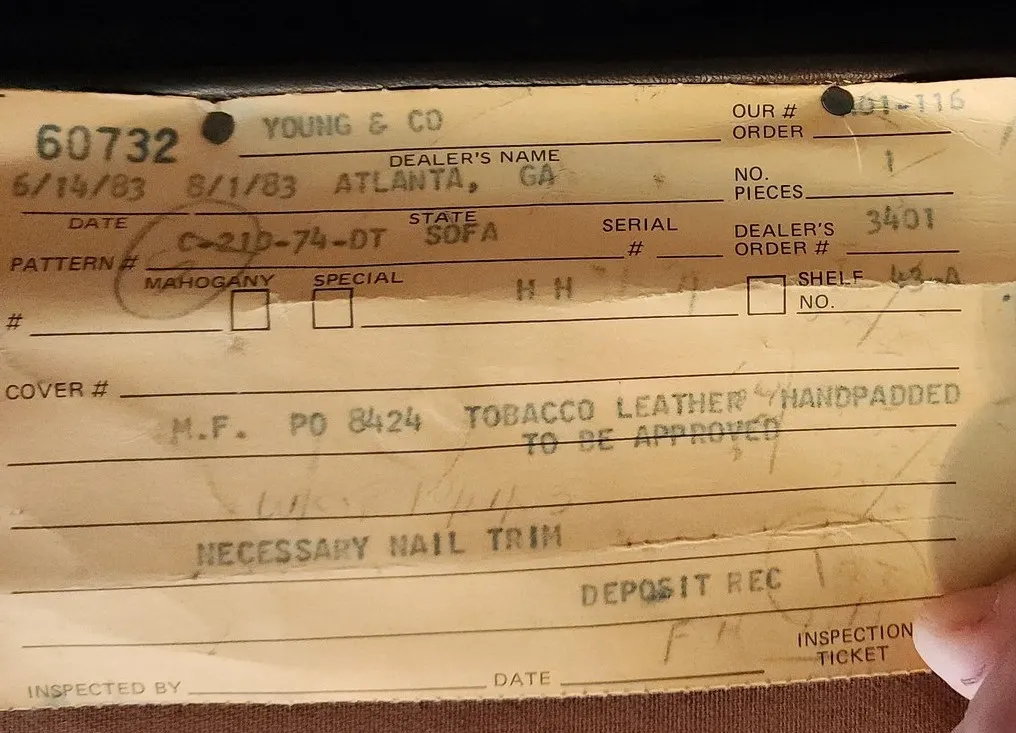 60732 YOUNG & CO OUR # ORDER 01-116
DEALER'S NAME
6/14/83 8/1/83 ATLANTA, GA NO. PIECES 1
DATE STATE
PATTERN # C-21D-74-DT SOFA SERIAL # DEALER'S ORDER # 3401
MAHOGANY SPECIAL H H SHELF NO. 43-A
#
COVER #
M.F. PO 8424 TOBACCO LEATHER HANDPADDED
TO BE APPROVED
NECESSARY NAIL TRIM
DEPOSIT REC
F H
INSPECTION TICKET
INSPECTED BY DATE